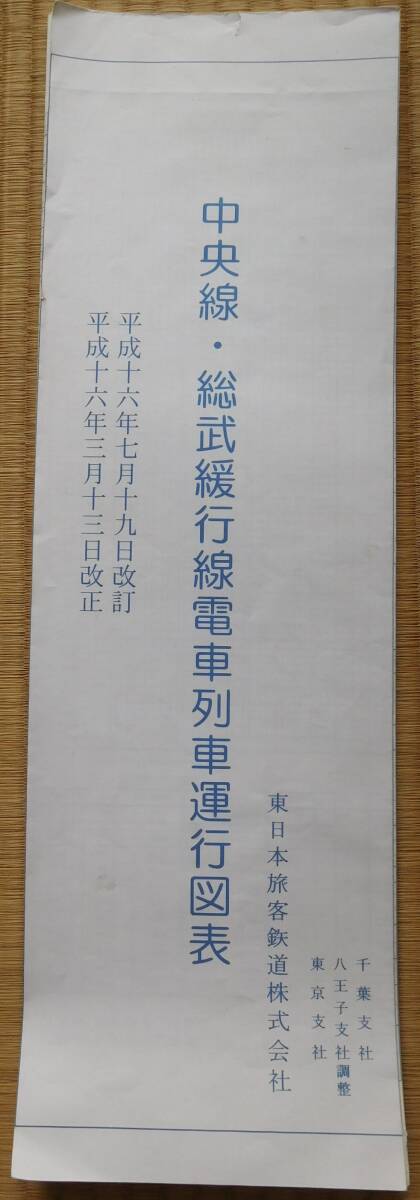 千葉支社
八王子支社調整
東京支社
東日本旅客鉄道株式会社
中央線・総武緩行線電車列車運行図表
平成十六年七月十九日改訂
平成十六年三月十三日改正